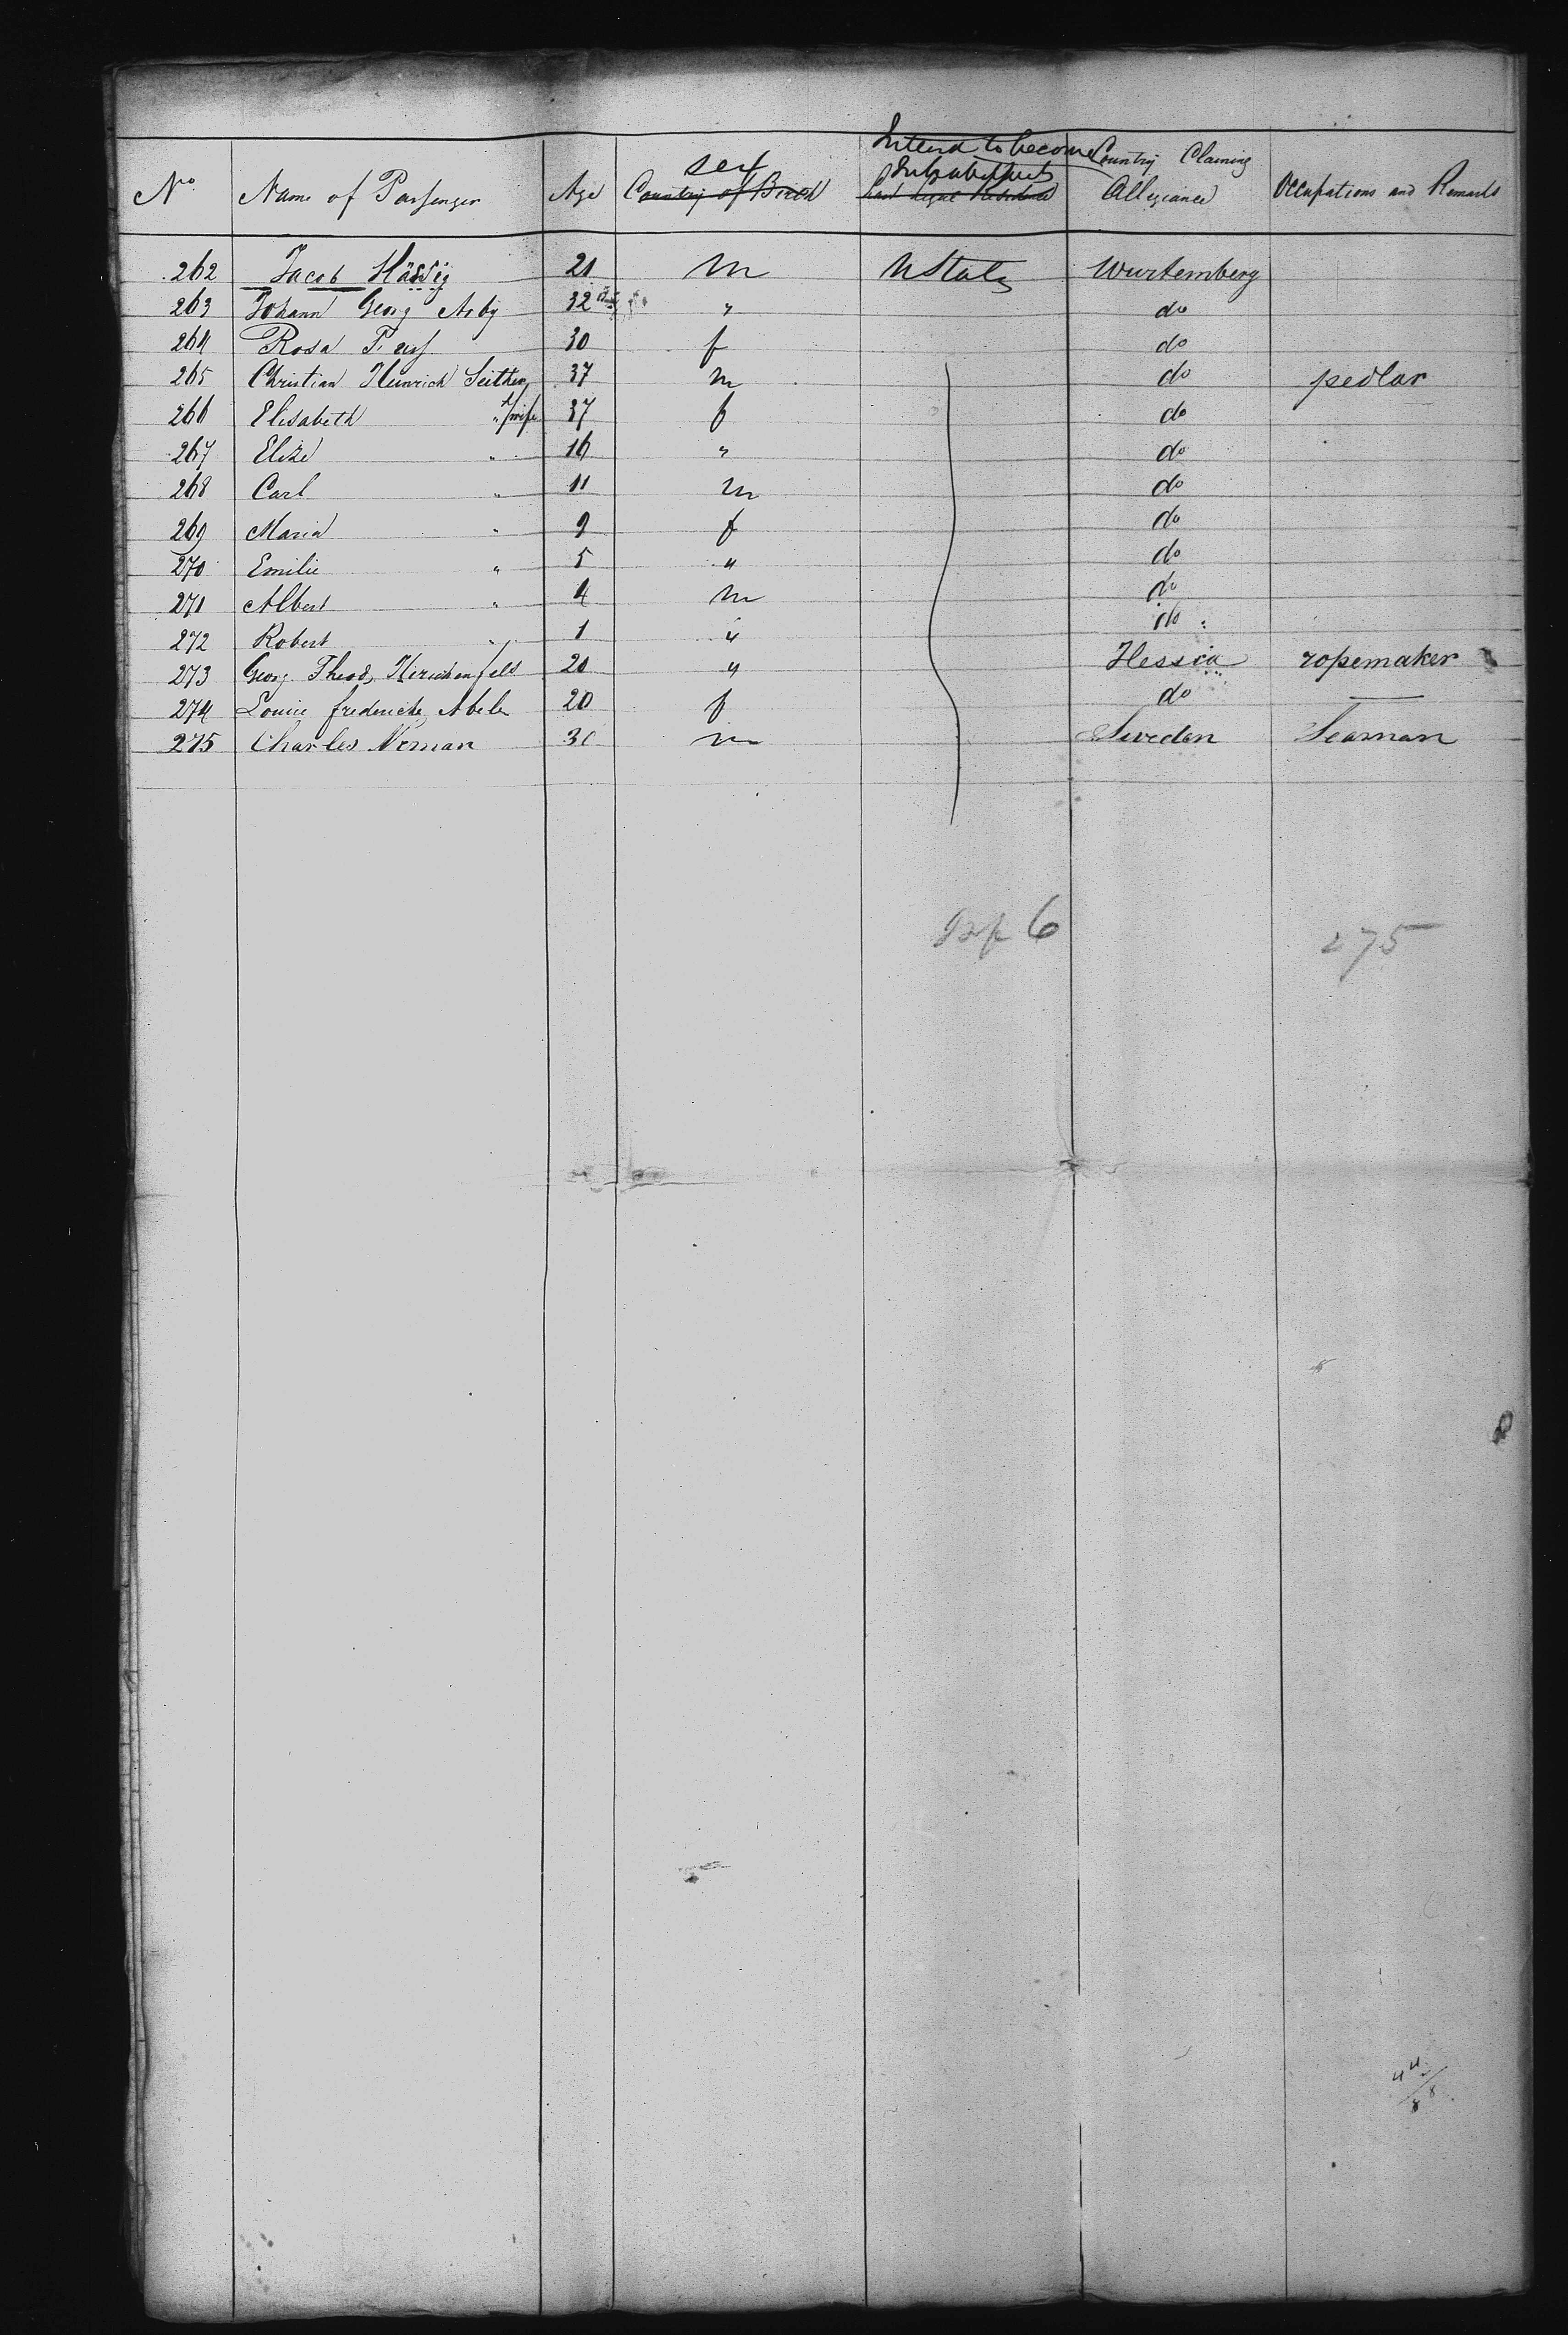 No Name of Passenger Age sex Country of Birth Intend to become Inhabitants Last Legal Residence Country Claiming Allegiance Occupations and Remarks
262 Jacob 21 m U States Wurtemberg
263 Johann Georg 32 " do
264 Rosa 30 f do
265 Christian Heinrich 37 m do pedlar
266 Elisabeth " wife 37 f do
267 Elize " 16 " do
268 Carl " 11 m do
269 Maria " 9 f do
270 Emilie " 5 " do
271 Albert " 4 m do
272 Robert " 1 " do
273 Georg Theod. 20 " Hessia ropemaker
274 Louise friedericke Abele 20 f do —
275 Charles Neman 30 m Sweden Seaman
6 275
44/88